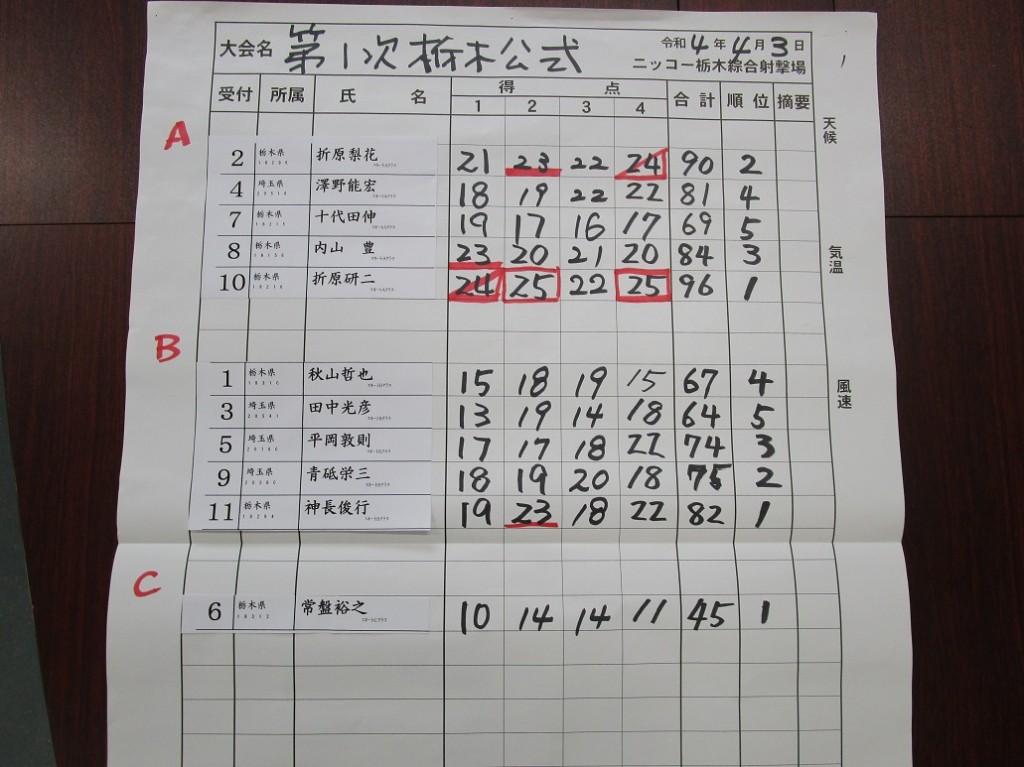 大会名 第1次栃木公式 令和4年4月3日
ニッコー栃木綜合射撃場
受付 所属 氏 名 得 点 合計 順位 摘要
1 2 3 4
天候
A
2 栃木県 折原梨花 21 23 22 24 90 2
4 埼玉県 澤野能宏 18 19 22 22 81 4
7 栃木県 十代田伸 19 17 16 17 69 5
8 栃木県 内山 豊 23 20 21 20 84 3
気温
10 栃木県 折原研二 24 25 22 25 96 1
B
1 栃木県 秋山哲也 15 18 19 15 67 4
風速
3 埼玉県 田中光彦 13 19 14 18 64 5
5 埼玉県 平岡敦則 17 17 18 22 74 3
9 埼玉県 青砥栄三 18 19 20 18 75 2
11 栃木県 神長俊行 19 23 18 22 82 1
C
6 栃木県 常盤裕之 10 14 14 11 45 1